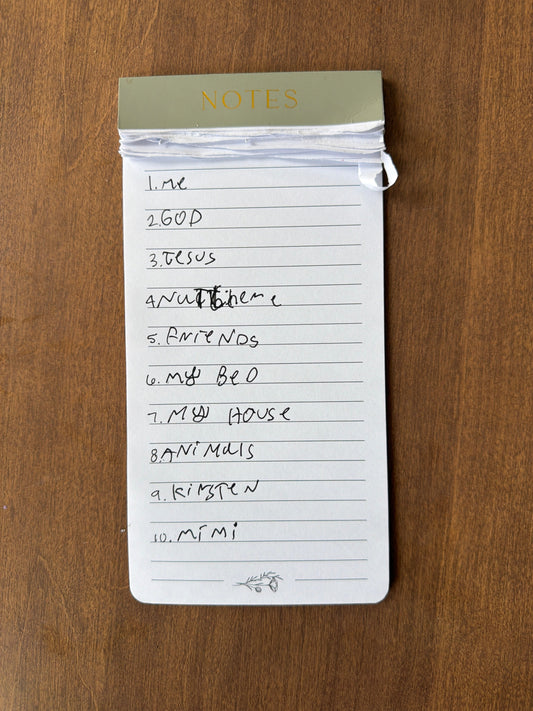 NOTES
1. me
2. GOD
3. Jesus
5. FRIENDS
6. My BeD
7. My HOUSe
8. ANiMals
9. KiRSTEN
10. MiMi